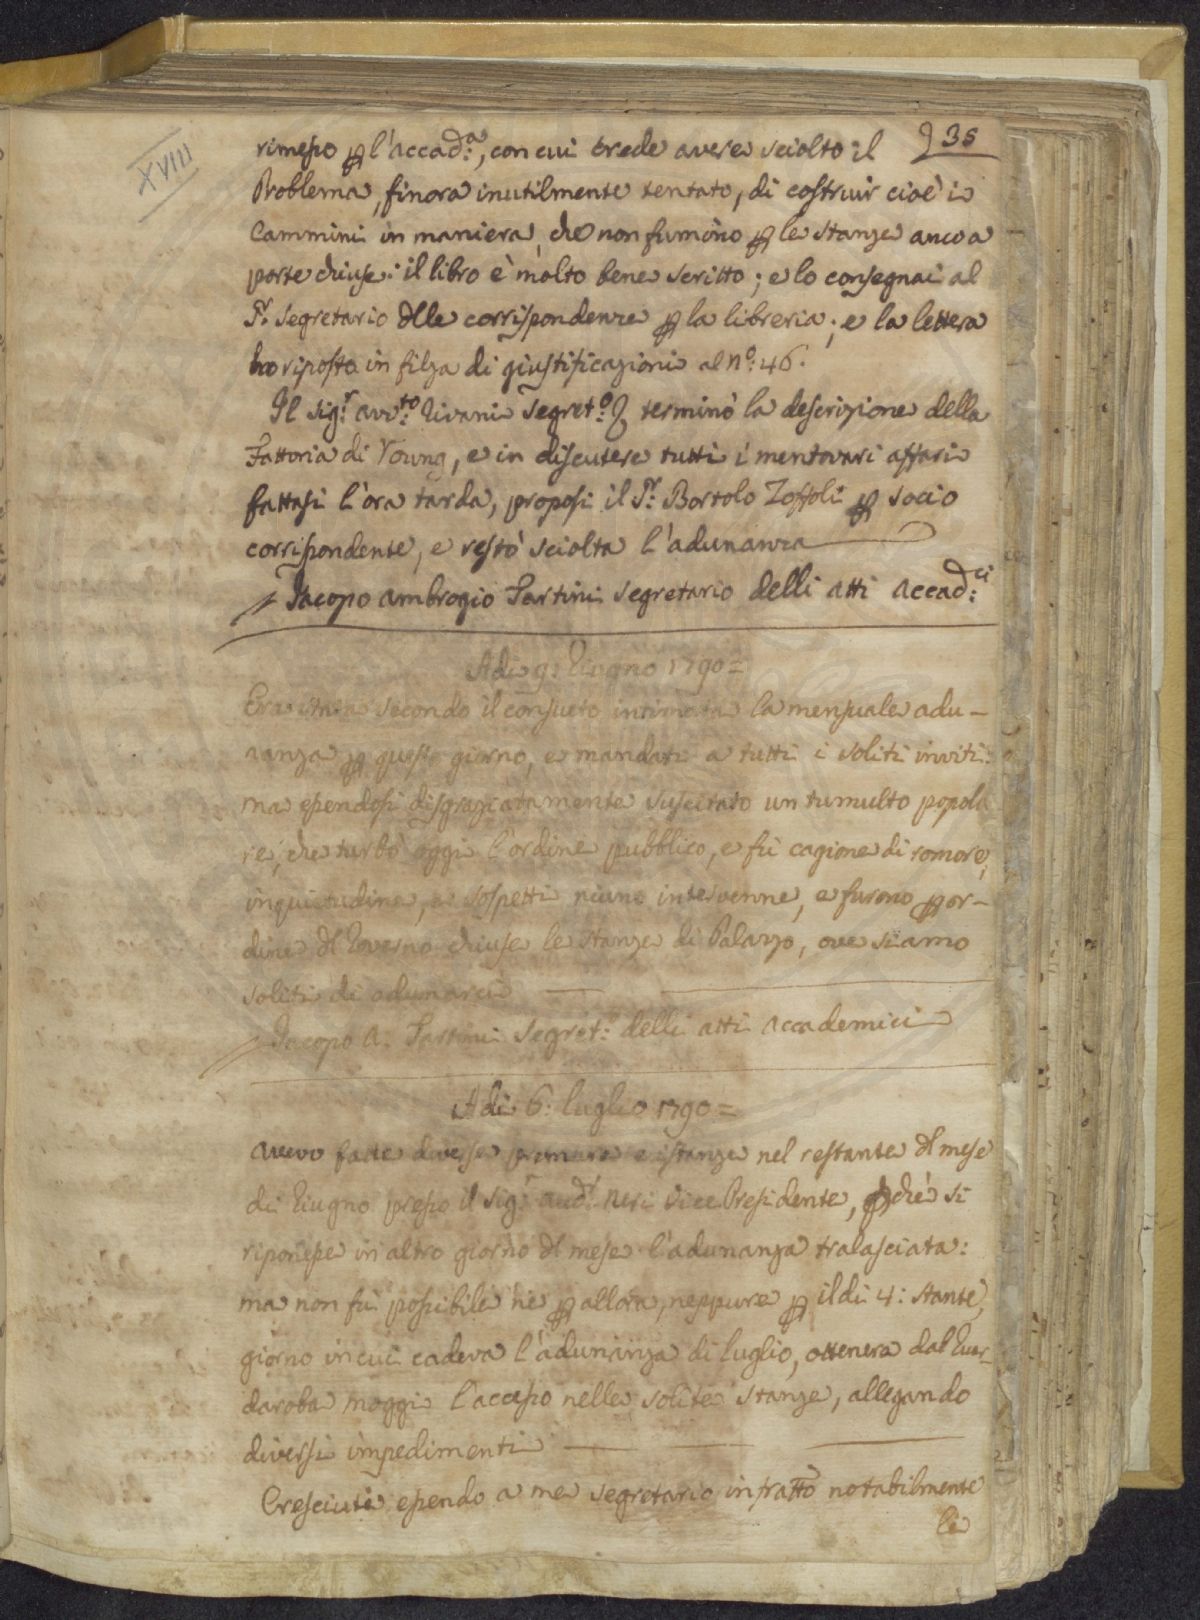 XVIII
235
rimesso p l'accad:a, con cui crede avere sciolto il
Problema, finora inutilmente tentato, di costruir cioè i
Cammini in maniera, che non fumino p le stanze anco a
porte chiuse: il libro è molto bene scritto; e lo consegnai al
Sr. Segretario dlle corrispondenze p la libreria; e la lettera
ho riposta in filza di giustificazioni al n°: 46.
Il Sigr. avv:to Rivani Segret:o terminò la descrizione della
Fattoria di Young, e in discutere tutti i mentovari affari
fattasi l'ora tarda, proposi il Sr. Bortolo Zoffoli p socio
corrispondente, e restò sciolta l'adunanza
Jacopo Ambrogio Tartini Segretario delli atti accad:ci
Adi 9: Giugno 1790=
Era stata secondo il consueto intimata la mensuale adu-
nanza p questo giorno, e mandati a tutti i soliti inviti:
ma essendosi disgraziatamente suscitato un tumulto popola
re, che turbò oggi l'ordine pubblico, e fù cagione di romore,
inquietudine, e sospetti niuno intervenne, e furono p or-
dine dl Governo chiuse le stanze di Palazzo, ove siamo
soliti di adunarci
Jacopo A. Tartini Segret:o delli atti accademici
Adi 6: luglio 1790=
Avevo fatte diverse premure e istanze nel restante dl mese
di Giugno presso il Sigr. Audr. Neri Vice Presidente, pchè si
riponesse in altro giorno dl mese l'adunanza tralasciata:
ma non fù possibile nè p allora, neppure p il di 4: stante,
giorno in cui cadeva l'adunanza di luglio, ottenere dal Guar-
daroba Moggi l'accesso nelle solite stanze, allegando
diversi impedimenti
Cresciuti essendo a me segretario infratto notabilmente
li